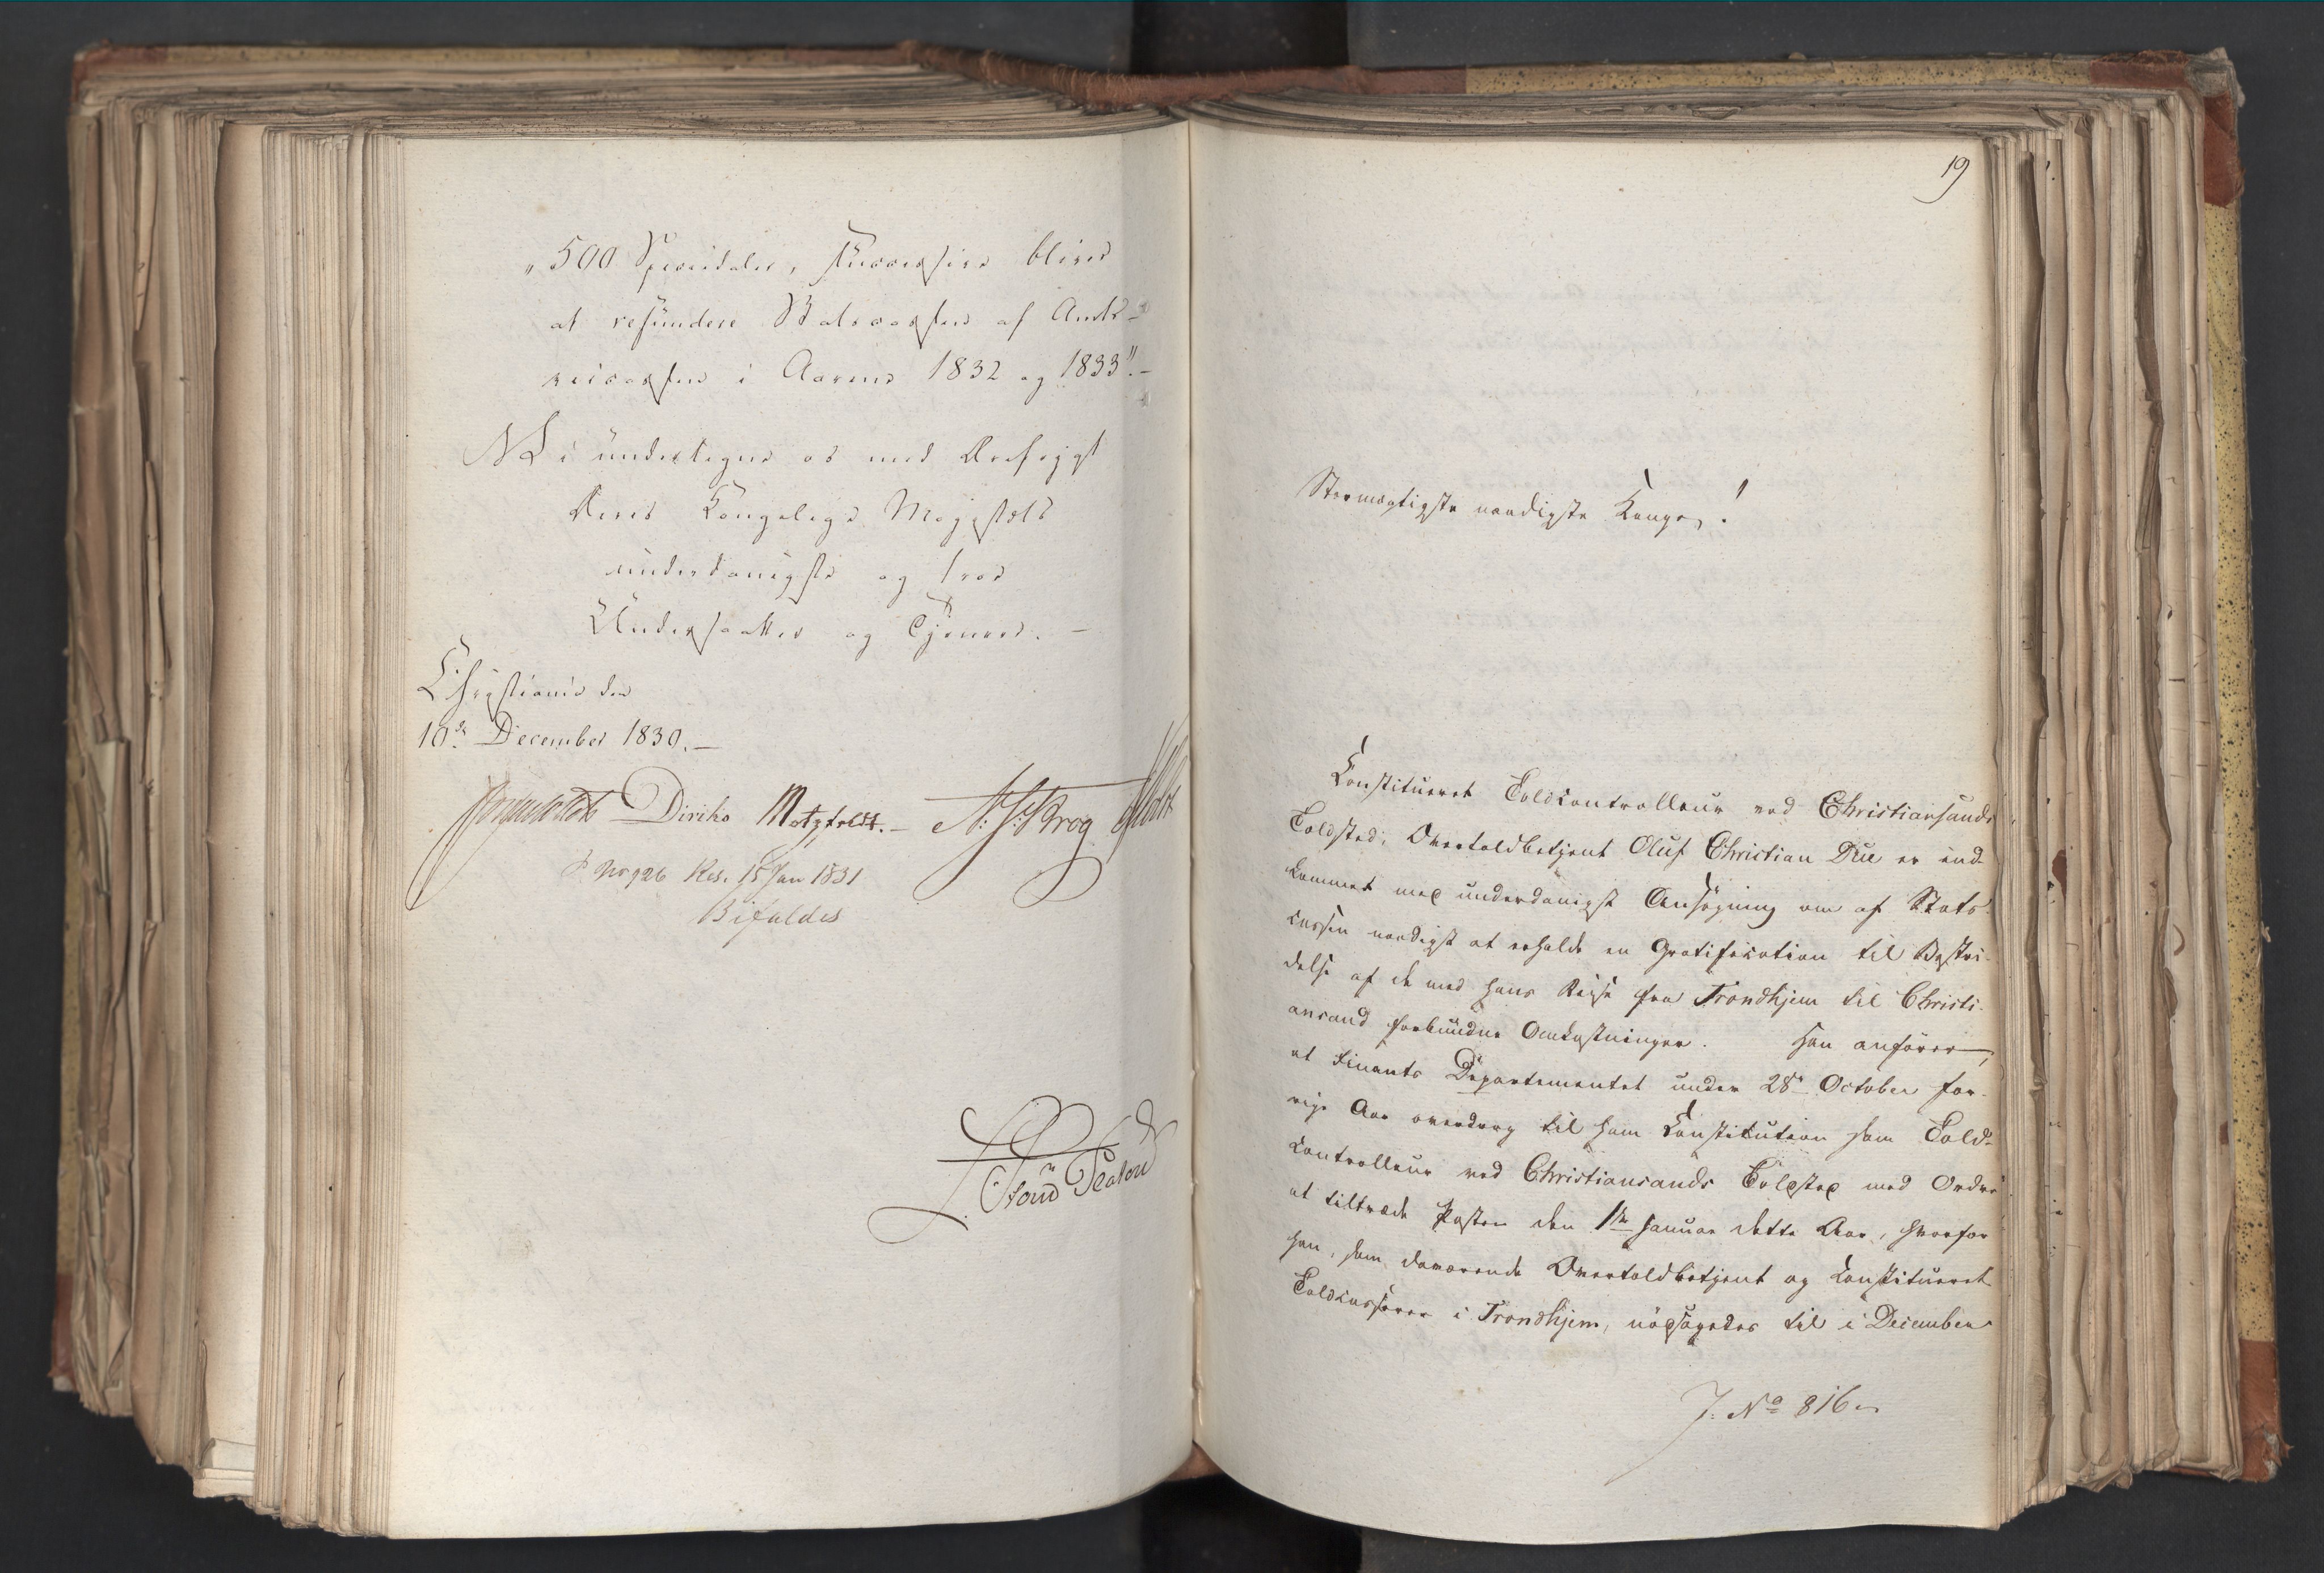 "500 Speciedaler, successive bliver
at refundere Statscassen af Amts-
reicassen i Aarene 1832 og 1833".-
Vi undertegne os med Ærefrygt
Deres Kongelige Majestæts
underdanigste og troe
Undersaatter og Tjenere. -
Christiania den
10de December 1830.-
Diriks Motzfeldt.- N: J: Krog Holst
No 926 Res. 15 Jan 1831
Bifaldes
19
Stormægtigste naadigste Konge!
Constitueret Toldcontrolleur ved Christiansands
Toldsted, Overtoldbetjent Oluf Christian Due er ind-
kommet med underdanigst Ansøgning om af Stats-
cassen naadigst at erholde en Gratification til Bestri-
delse af de med hans Reise fra Trondhjem til Christi-
ansand forbundne Omkostninger. Han anfører,
at Finants Departementet under 28de October for-
rige Aar overdrog til ham Constitution som Told-
Controlleur ved Christiansands Toldsted med Ordre
at tiltræde Posten den 1ste Januar dette Aar, hvorfor
han, som daværende Overtoldbetjent og Constitueret
Toldcasserer i Trondhjem, nødsagedes til i December
J: No 816